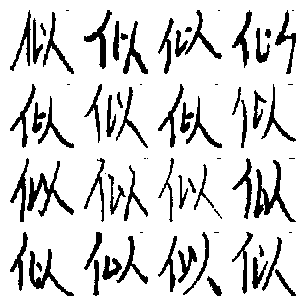 似似似似
似似似似
似似似似
似似似似